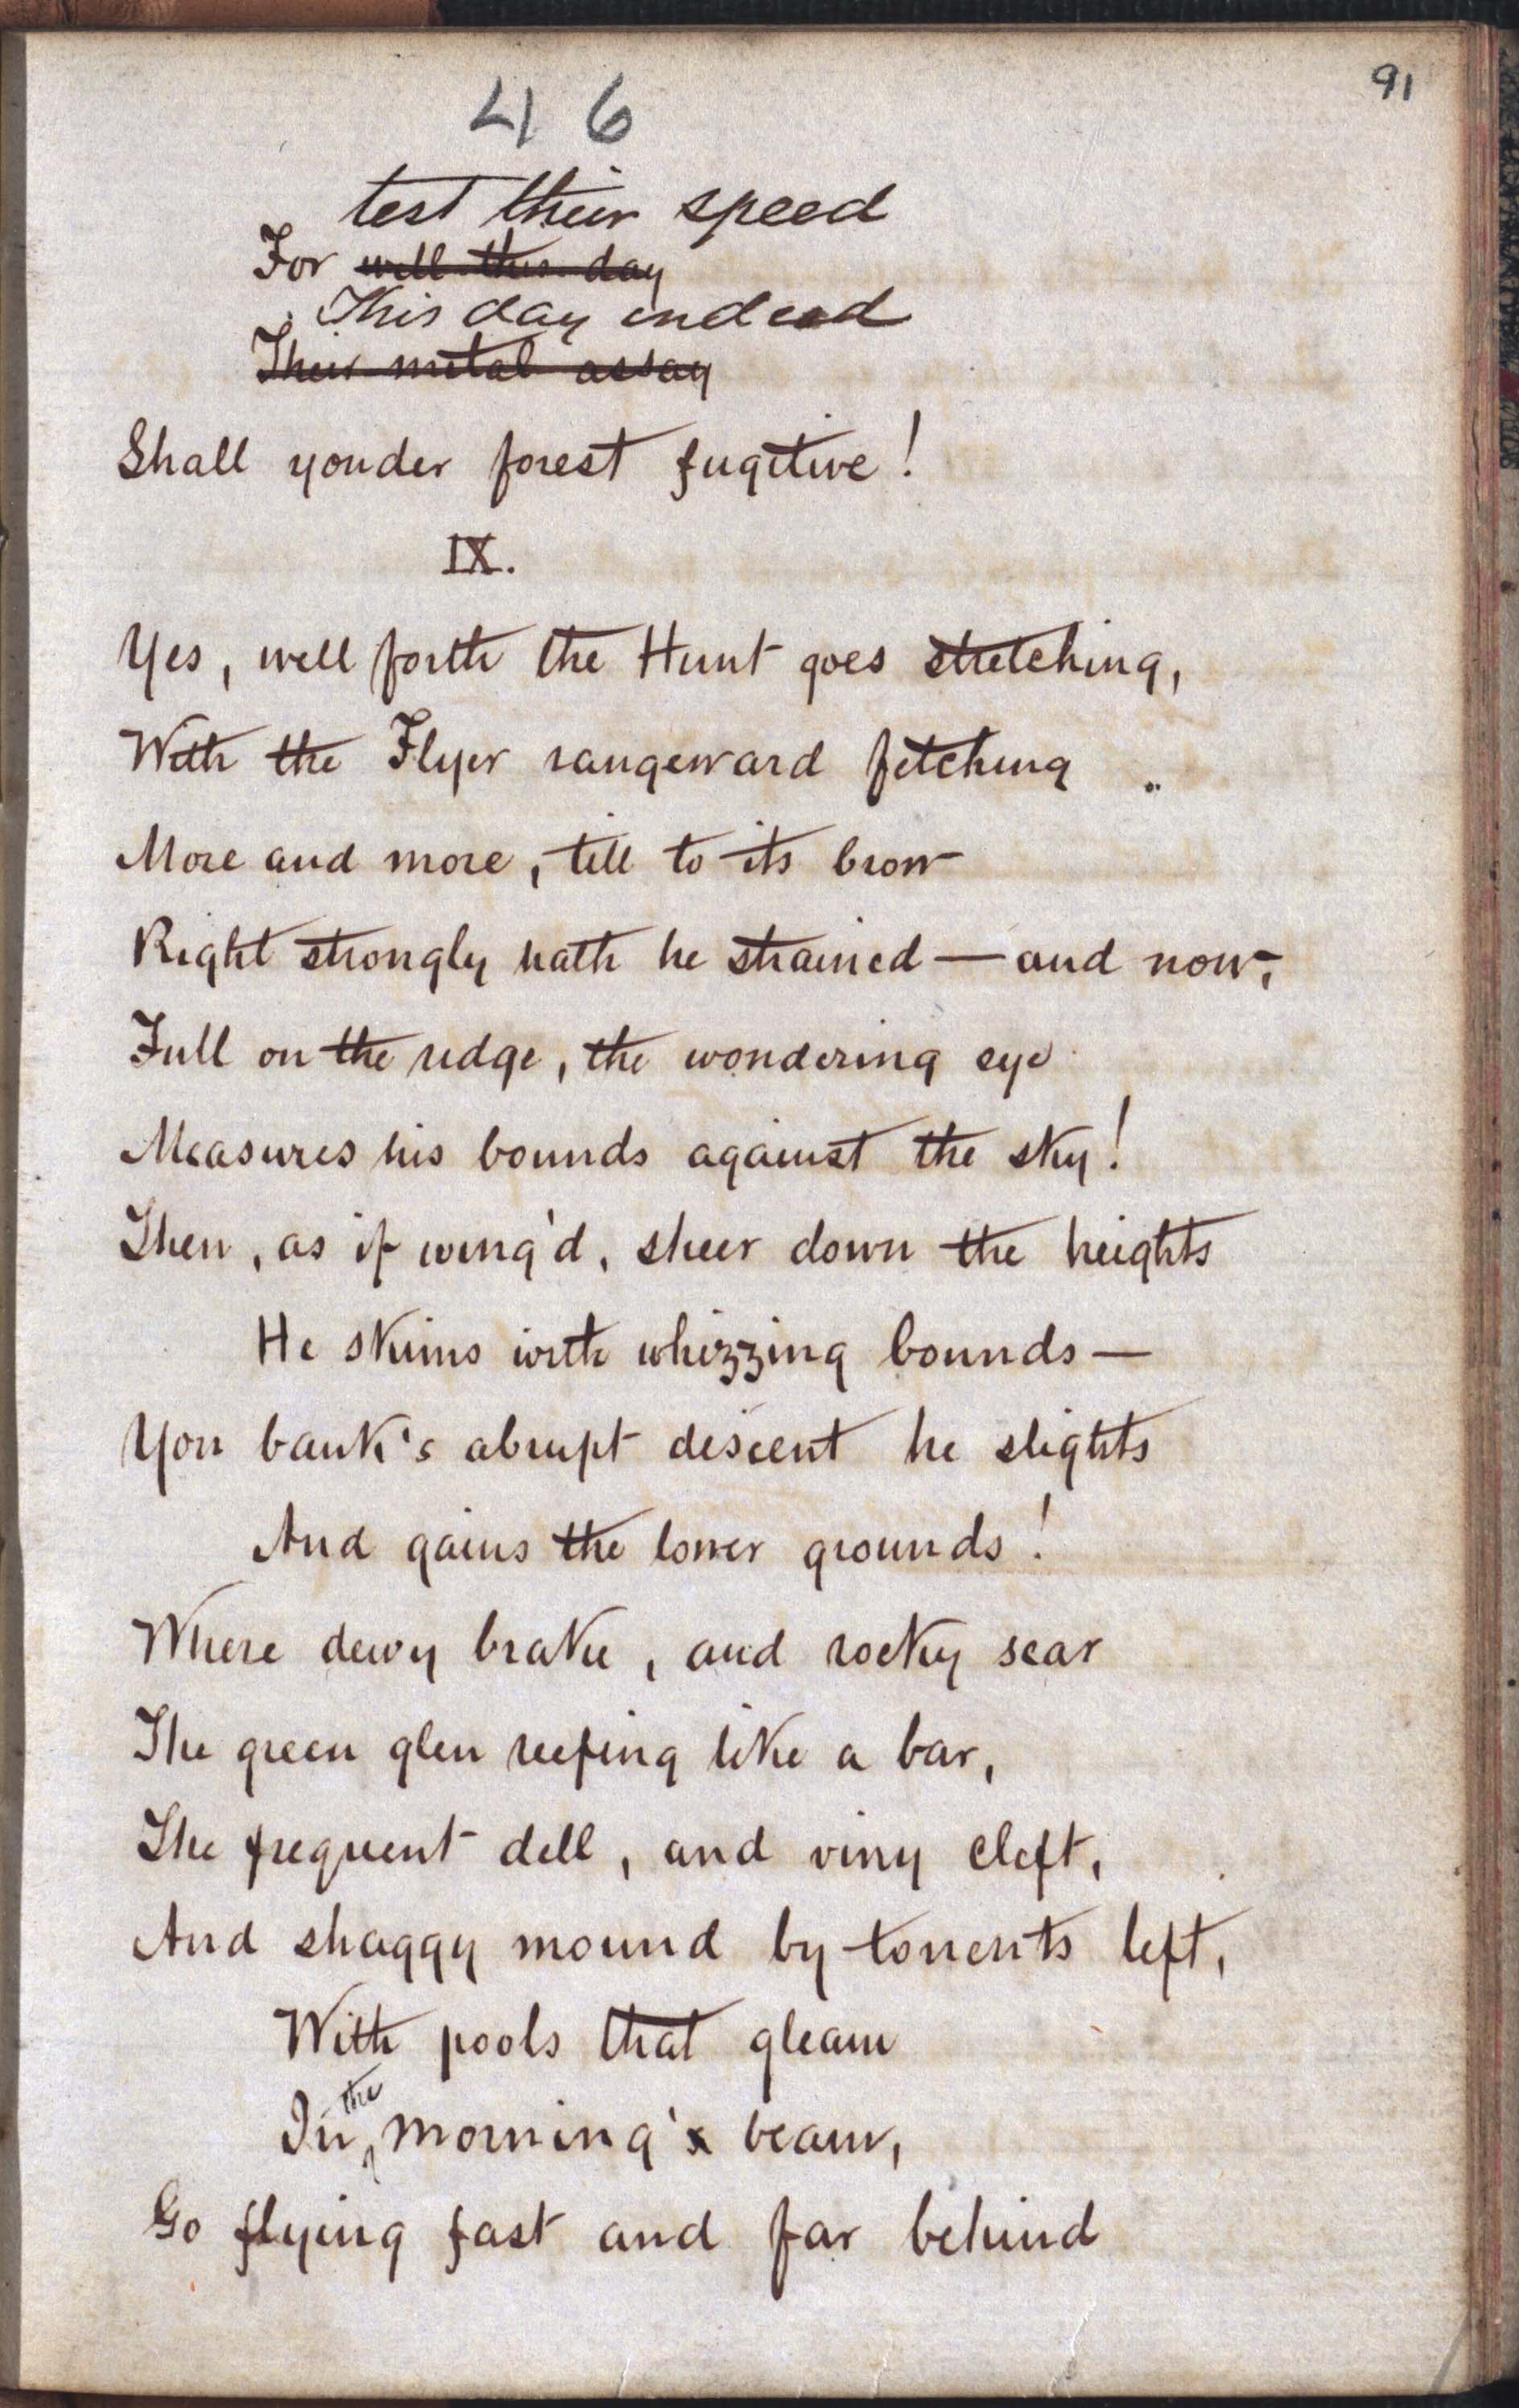 91
46
test their speed
For well this day
This day indeed
Their metal assay
Shall yonder forest fugitive!
IX.
Yes, well forth the Hunt goes stretching,
With the Flyer rangeward fetching
More and more, till to its brow
Right strongly hath he strained — and now,
Full on the ridge, the wondering eye
Measures his bounds against the sky!
Then, as if wing'd, sheer down the heights
He skims with whizzing bounds —
Yon bank's abrupt descent he slights
And gains the lower grounds!
Where dewy brake, and rocky scar
The green glen reefing like a bar,
The frequent dell, and viny cleft,
And shaggy mound by torrents left,
With pools that gleam
In the morning's beam,
Go flying fast and far behind